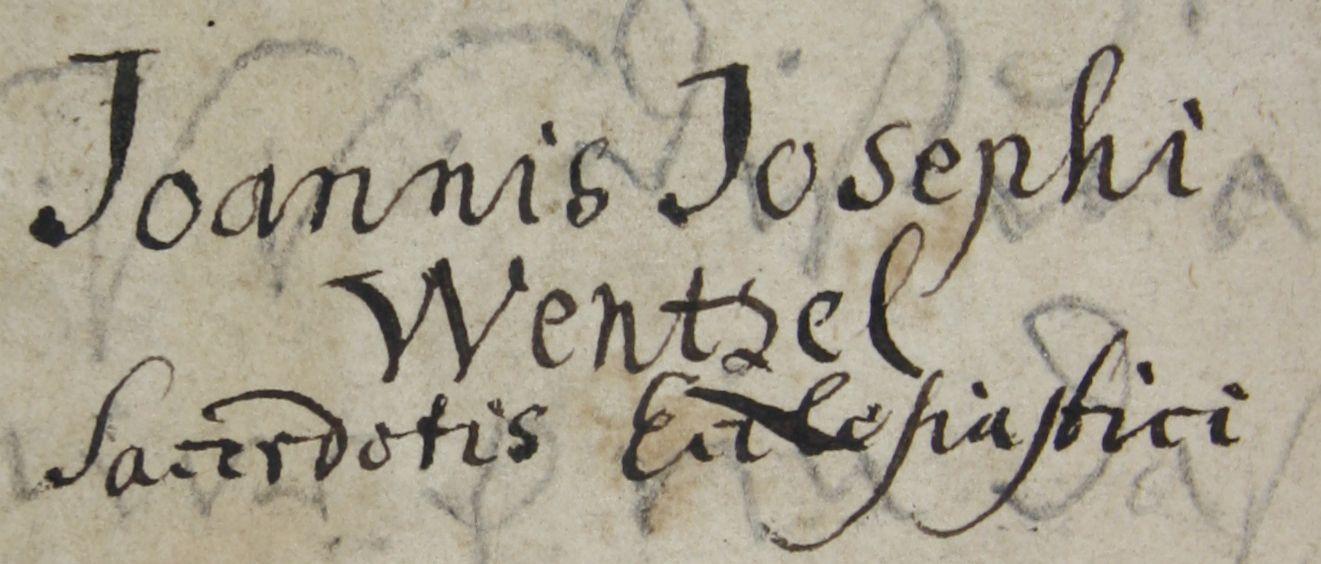 Joannis Josephi
Wentzel
Sacerdotis Ecclesiastici